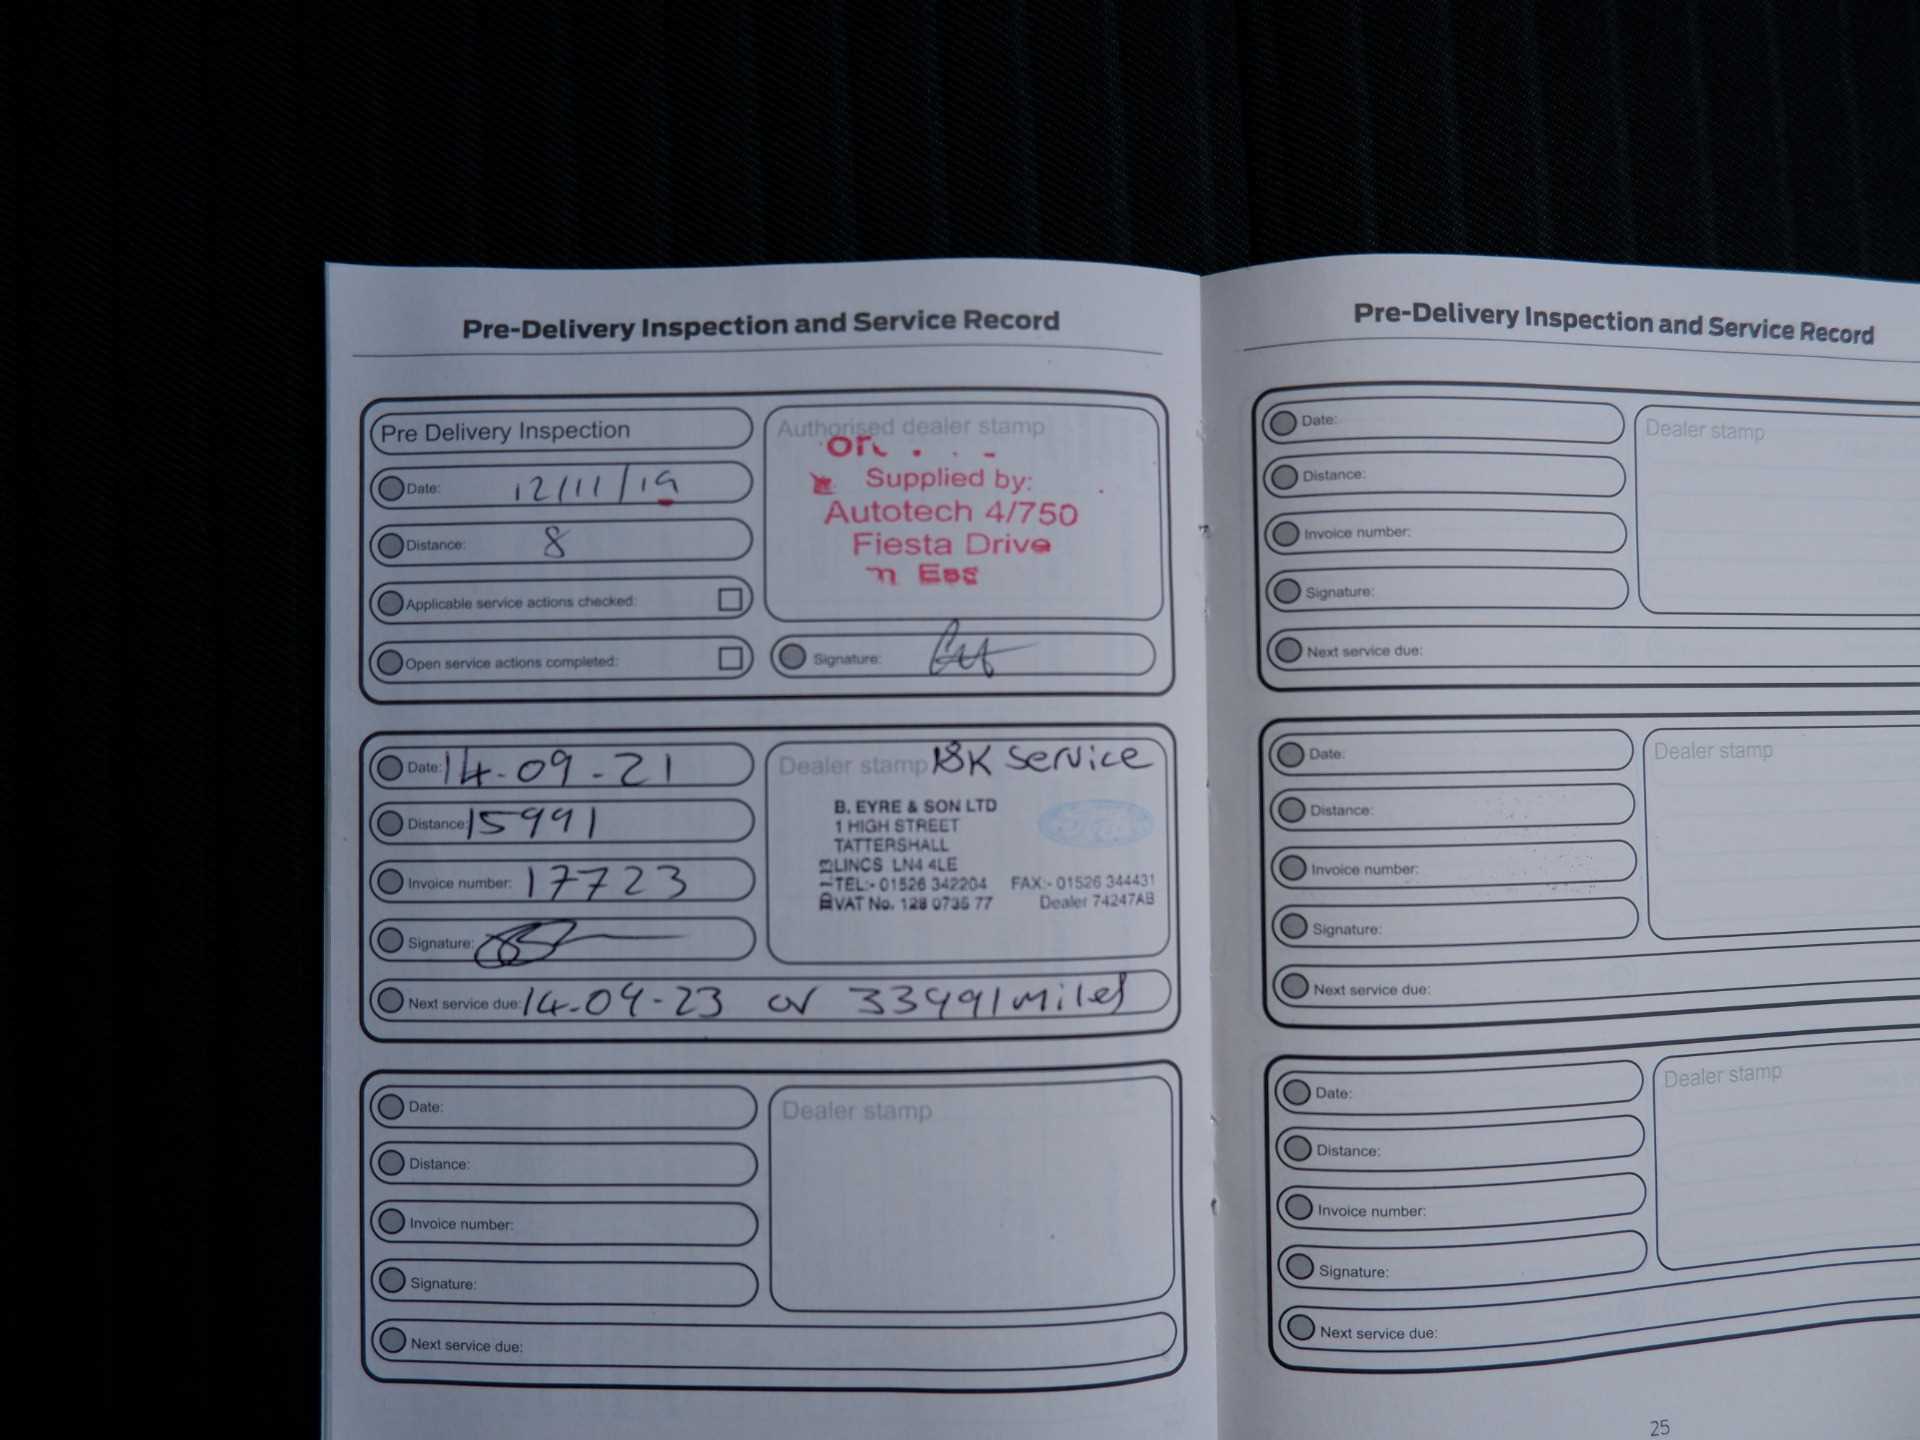 Pre-Delivery Inspection and Service Record
Pre Delivery Inspection
Date: 12/11/19
Distance: 8
Applicable service actions checked:
Open service actions completed:
Authorised dealer stamp
Supplied by:
Autotech 4/750
Fiesta Drive
Signature:
Date: 14-09-21
Distance: 15991
Invoice number: 17723
Signature:
Next service due: 14-09-23 or 33991 miles
Dealer stamp 18K Service
B. EYRE & SON LTD
1 HIGH STREET
TATTERSHALL
LINCS LN4 4LE
TEL:- 01526 342204 FAX:- 01526 344431
VAT No. 128 0735 77 Dealer 74247AB
Ford
Date:
Distance:
Invoice number:
Signature:
Next service due:
Dealer stamp
Pre-Delivery Inspection and Service Record
Date:
Distance:
Invoice number:
Signature:
Next service due:
Dealer stamp
Date:
Distance:
Invoice number:
Signature:
Next service due:
Dealer stamp
Date:
Distance:
Invoice number:
Signature:
Next service due:
Dealer stamp
25